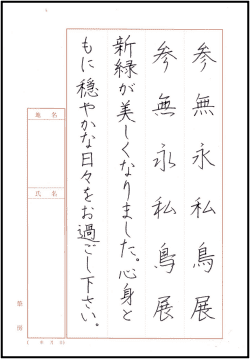 参無永私鳥展
参無永私鳥展
新緑が美しくなりました。心身と
もに穏やかな日々をお過ごし下さい。
氏名